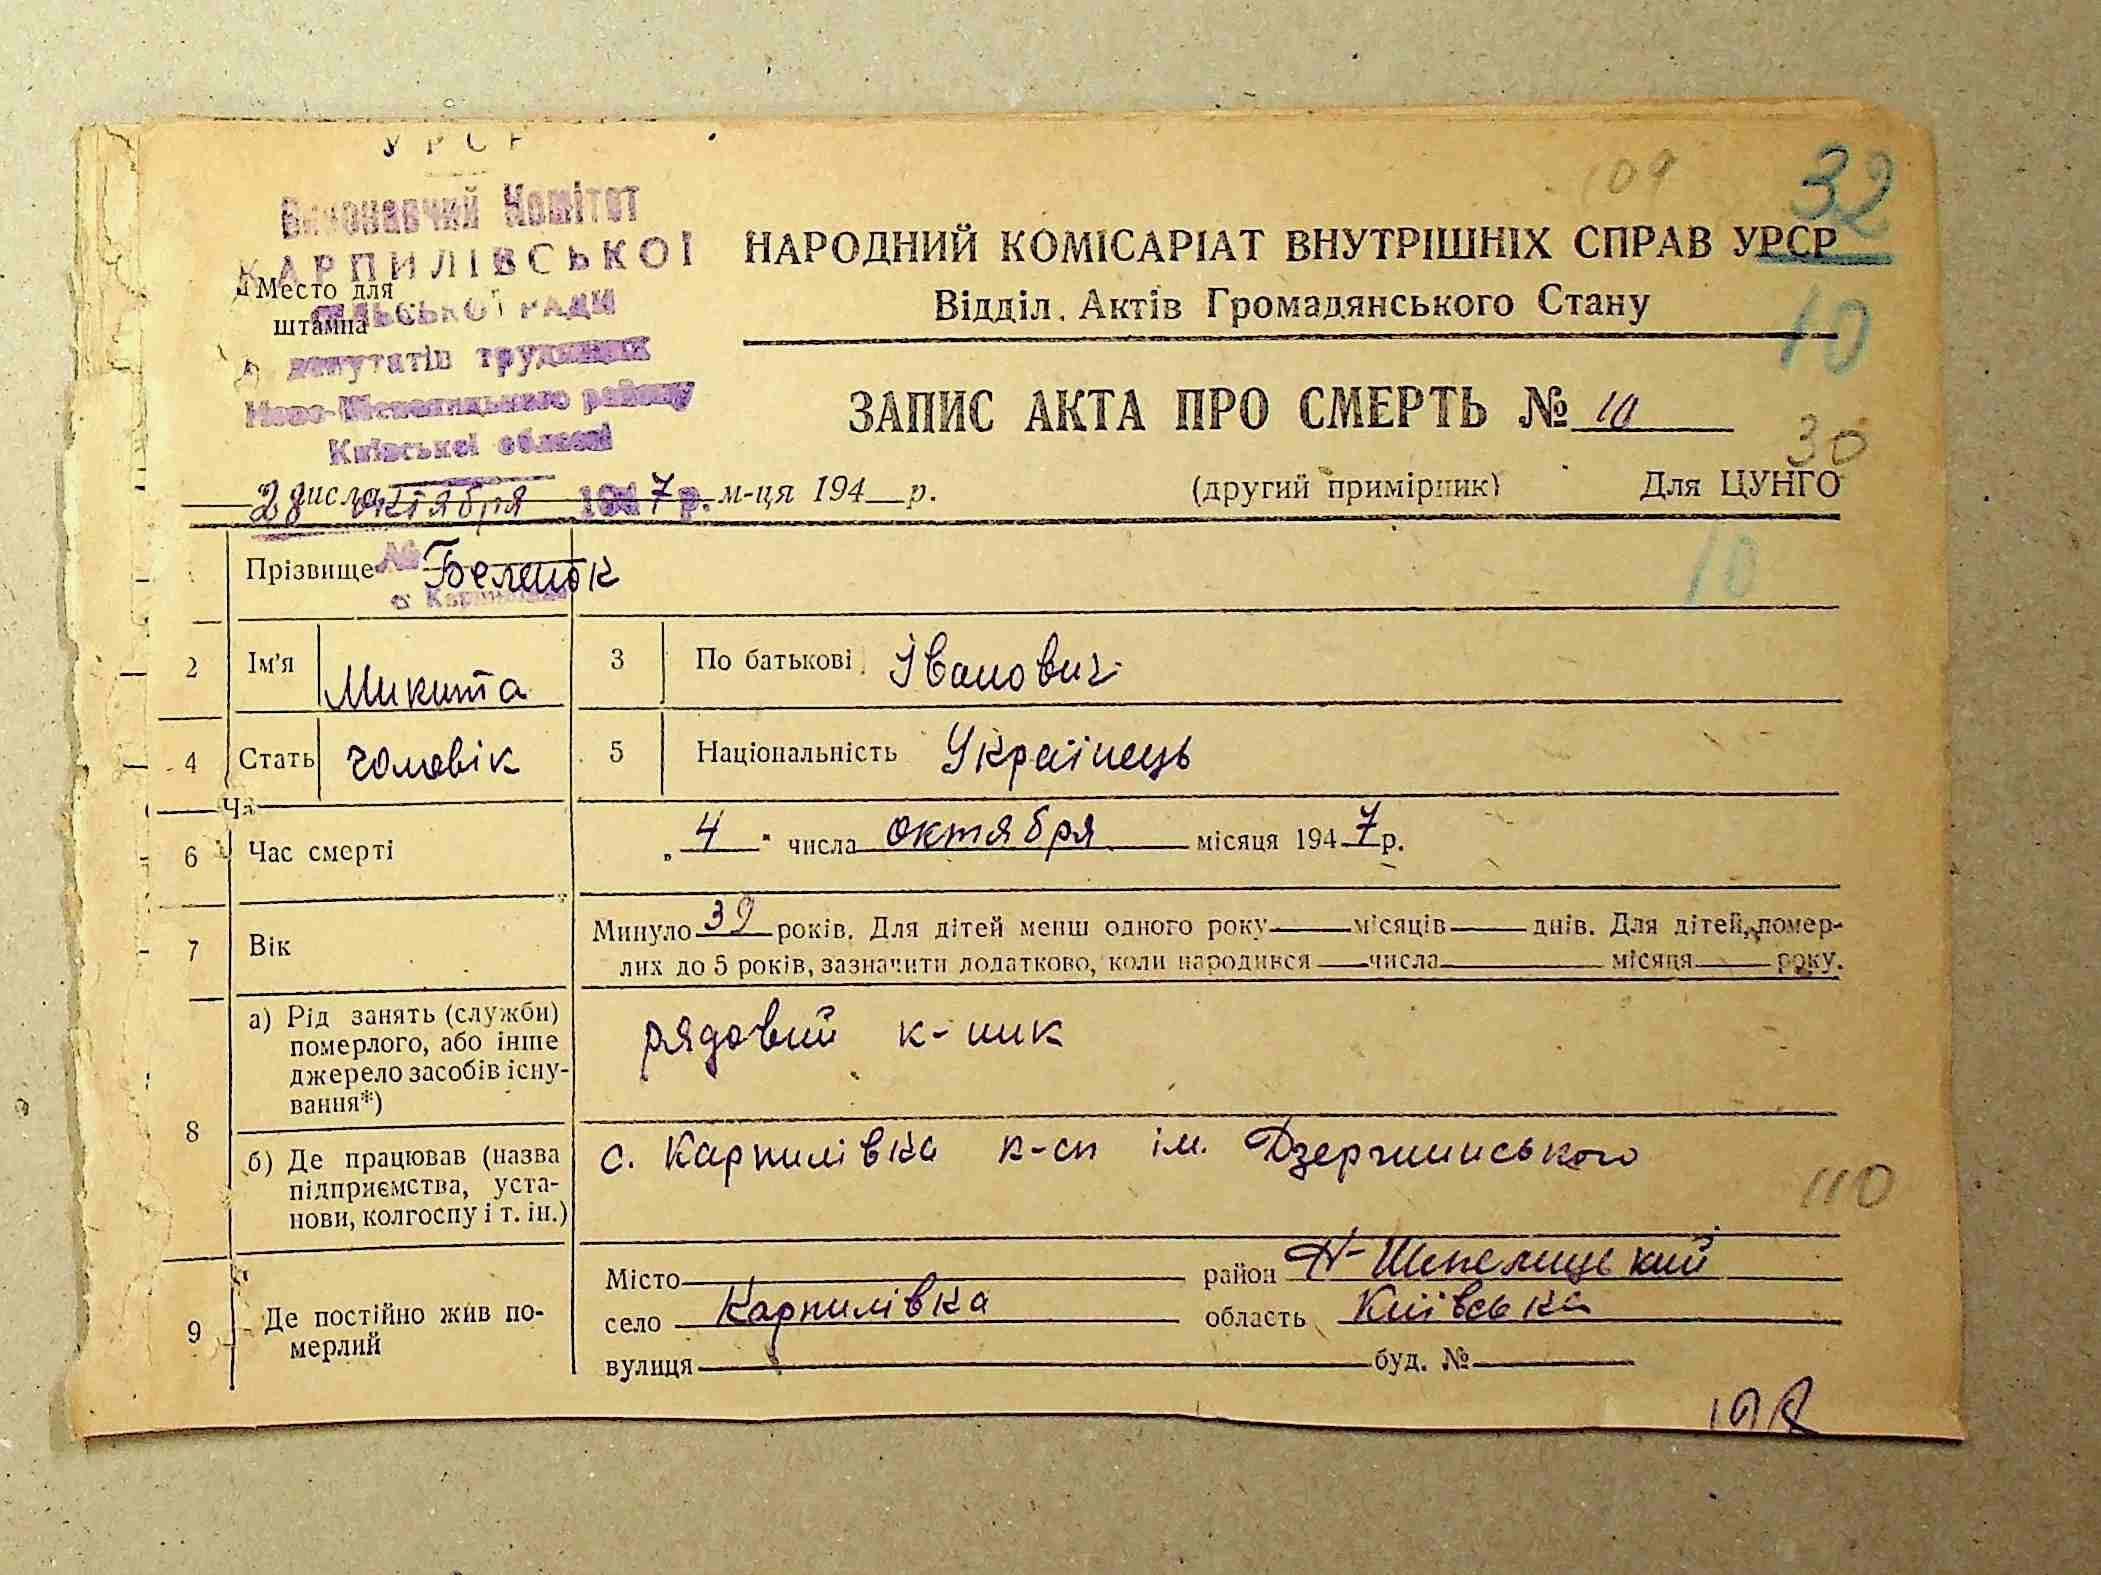 УРСР
Виконавчий Комітет
КАРПИЛІВСЬКОЇ
Место для
штампа
СІЛЬСЬКОЇ РАДИ
депутатів трудящих
Ново-Шепелицького району
Київської області
109
32
НАРОДНИЙ КОМІСАРІАТ ВНУТРІШНІХ СПРАВ УРСР
Відділ Актів Громадянського Стану
10
ЗАПИС АКТА ПРО СМЕРТЬ № 10
30
28 числа октября 1947 р. м-ця 194 р.
(другий примірник) Для ЦУНГО
Прізвище
10
2 Ім'я Микита 3 По батькові Іванович
4 Стать чоловік 5 Національність Українець
6 Час смерті „4" числа октября місяця 1947 р.
7 Вік Минуло 39 років. Для дітей менш одного року місяців днів. Для дітей, помер-
лих до 5 років, зазначити додатково, коли народився числа місяця року.
8 а) Рід занять (служби)
померлого, або інше
джерело засобів існу-
вання*)
рядовий к-ник
б) Де працював (назва
підприємства, уста-
нови, колгоспу і т. ін.)
с. Карпилівка к-сп ім. Дзержинського
110
9 Де постійно жив по-
мерлий
Місто район Н-Шепелицький
село Карпилівка область Київська
вулиця буд. №